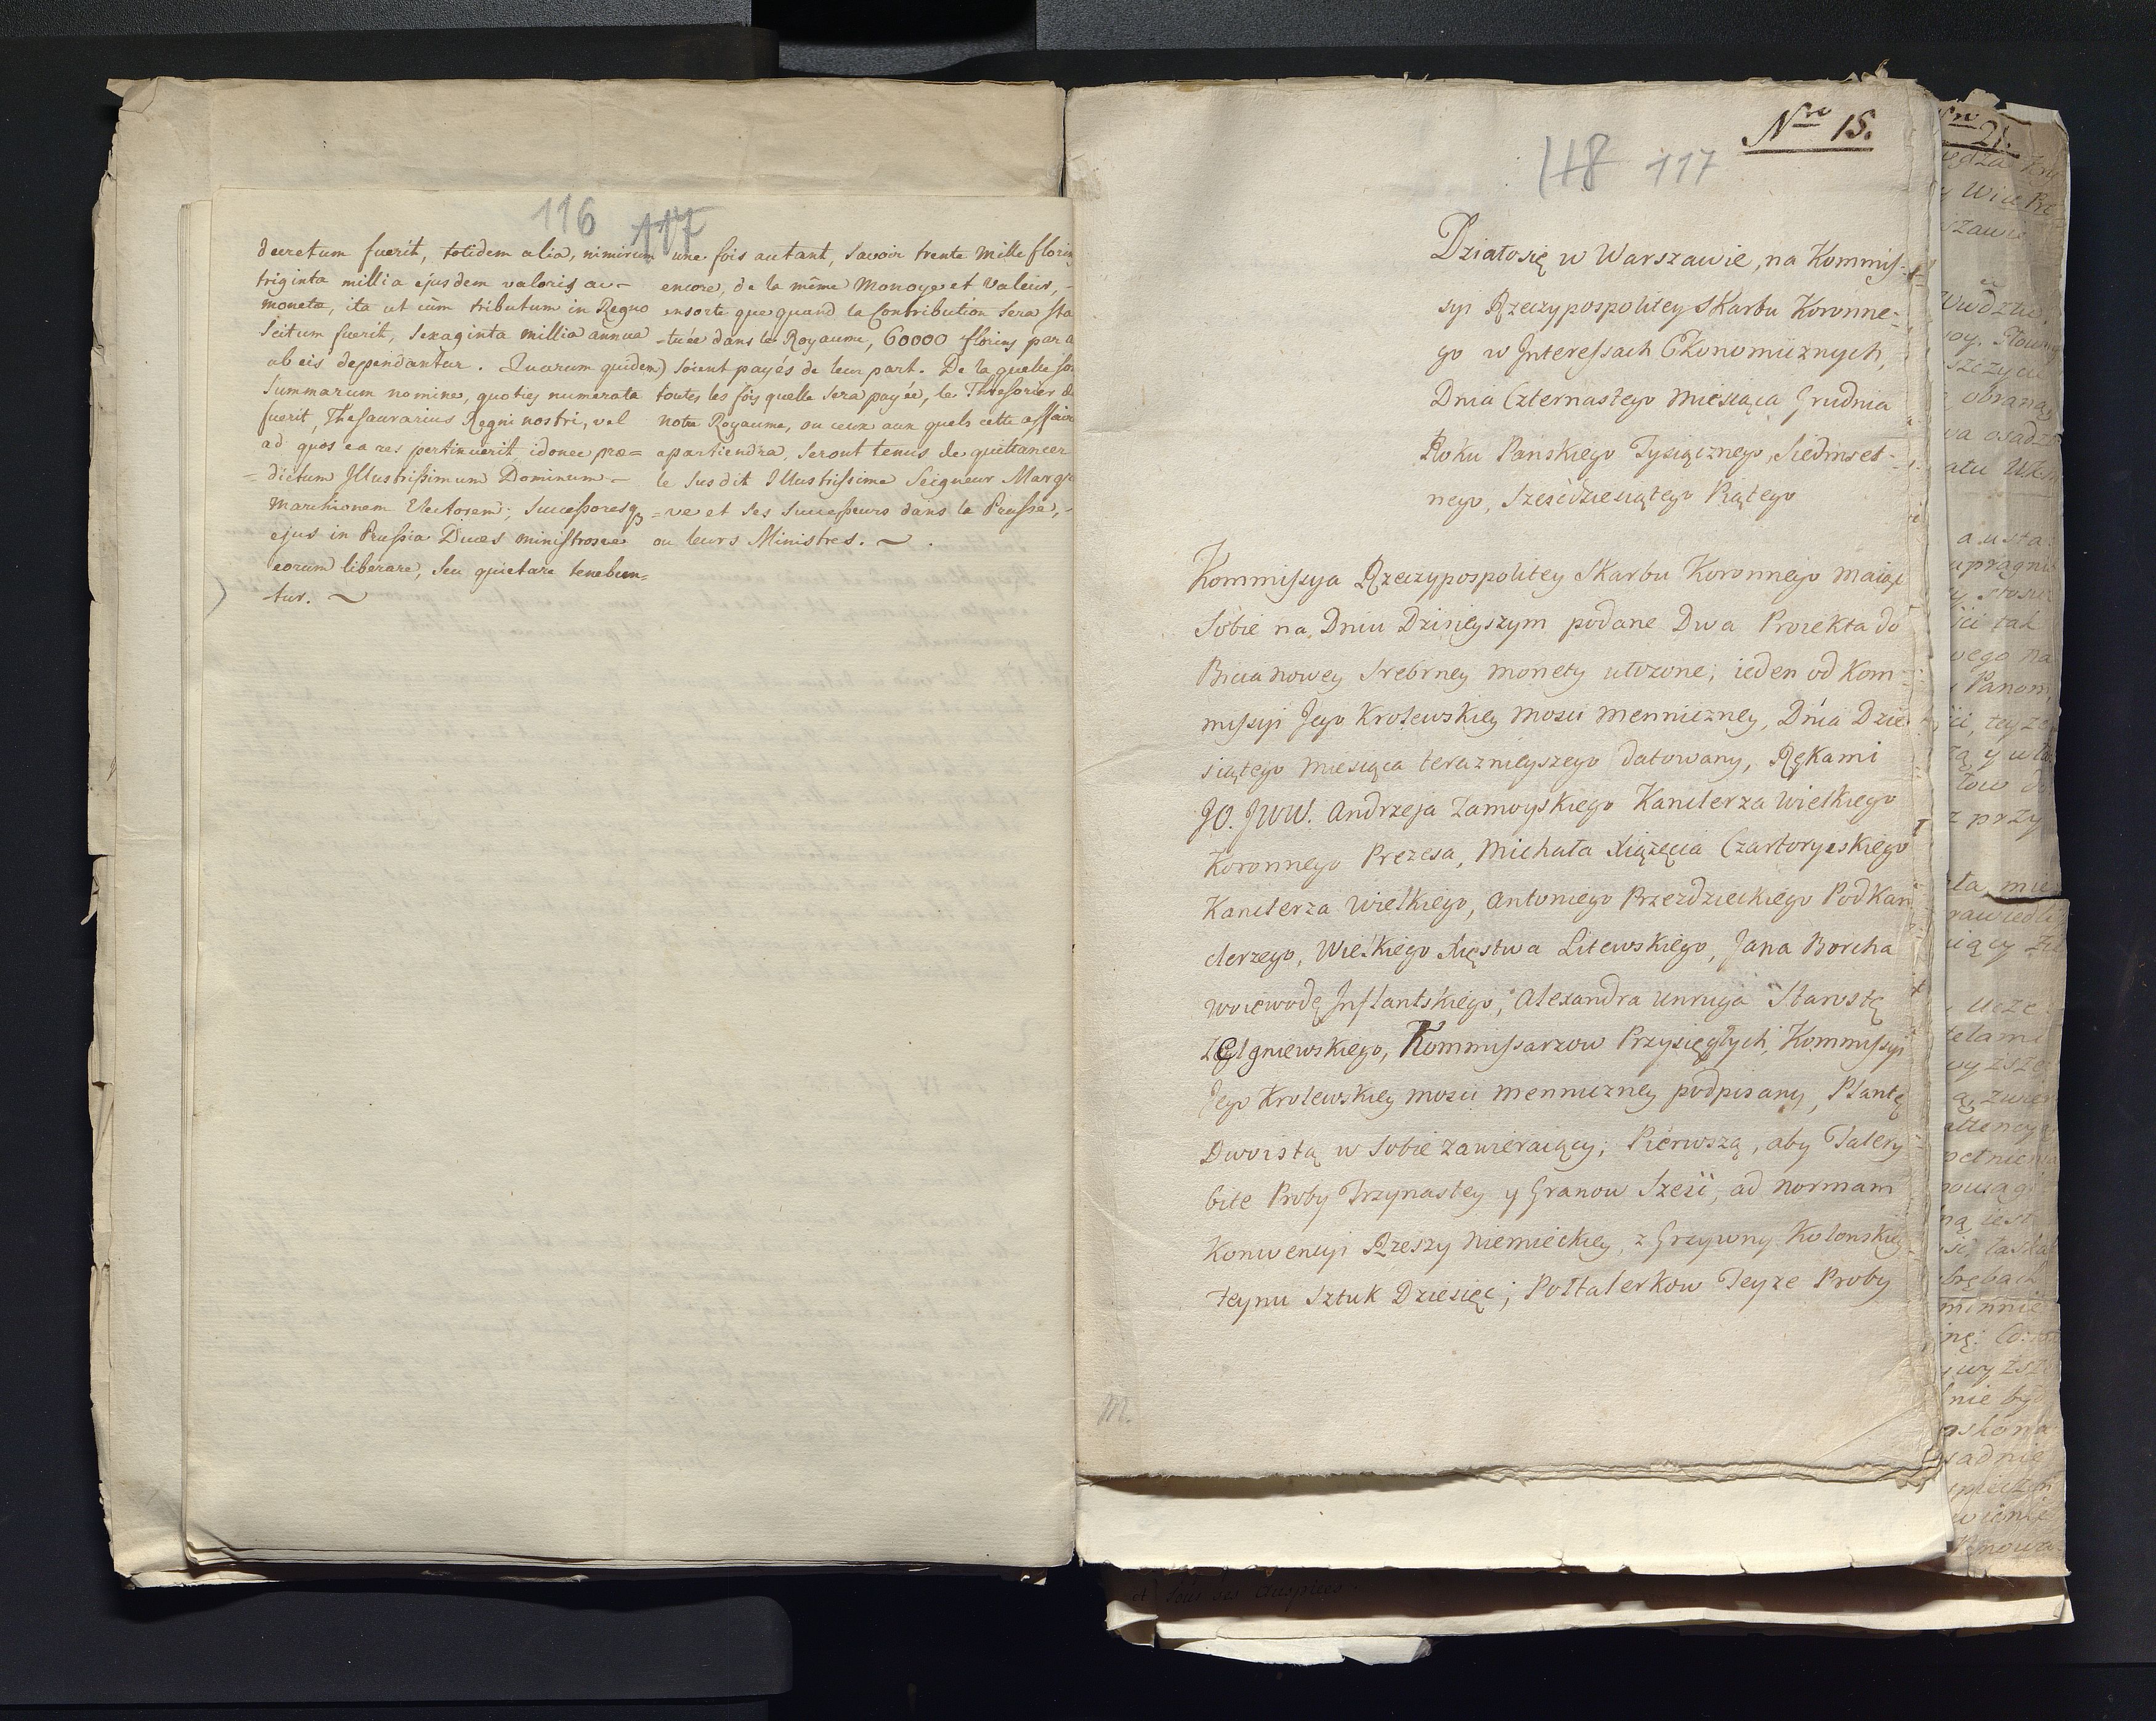 116 117
decretum fuerit, totidem alia, nimirum
triginta millia ejusdem valoris ac
moneta, ita ut cum tributum in Regno
scitum fuerit, sexaginta millia annua
ab eis dependantur. Quarum quidem
summarum nomine, quoties numerata
fuerit, Thesaurarius Regni nostri, vel
ad quos ea res pertinuerit, idonee præ=
=dictum Illustrissimum Dominum
Marchionem Electorem; Successoresq3
ejus in Prussia Duces ministrosve
eorum liberare, seu quietare tenebun=
tur.
une fois autant, savoir trente mille florin
encore, de la même Monoye et Valeur,
ensorte que quand la Contribution sera sta
-tuée dans le Royaume, 60000 florins par a
soient payés de leur part. De laquelle so
toutes les fois quelle sera payée, le Thresorier de
notre Royaume, ou ceux aux quels cette affair
apartiendra, seront tenus de quittancer
le susdit Illustrissime Seigneur Margra
=ve et ses successeurs dans la Prusse,
ou leurs Ministres.
Nro 15.
118 117
Działosię w Warszawie, na Kommis-
syi Rzeczypospolitey Skarbu Koronne-
go w Interessach Ekonomicznych,
Dnia Czternastego Miesiąca Grudnia
Roku Pańskiego Tysiącznego, Siedmset-
nego, Sześćdziesiątego Piątego
Kommissya Rzeczypospolitey Skarbu Koronnego maiąc
Sobie na Dniu Dzisieyszym podane Dwa Proiekta do
Bicia nowey Srebrney monety ułożone; ieden od Kom-
missyi Jego Krolewskiey Mosci Menniczney, Dnia Dzie-
siątego Miesiąca teraznieyszego datowany, Rękami
JO. JWW. Andrzeja Zamoyskiego Kanclerza Wielkiego
Koronnego Prezesa, Michała Xiążęcia Czartoryeskiego
Kanclerza Wielkiego, Antoniego Przezdzieckiego Podkan
clerzego, Wielkiego Xięstwa Litewskiego, Jana Borcha
Woiewodę Inflantskiego, Alexandra Unruga Starostę
Kommissarzow Przysięgłych, Kommissyi
Jego Krolewskiey Mosci Menniczney podpisany, Plantę
Dwoistą w Sobie zawieraiący; Pierwszą, aby Talery
bite Proby Trzynastey y Granow Sześć, ad normam
Konwencyi Rzeszy Niemieckiey, z Grzywny Kolonskiey
Feynu Sztuk Dziesięć; Połtalerkow Teyże Proby